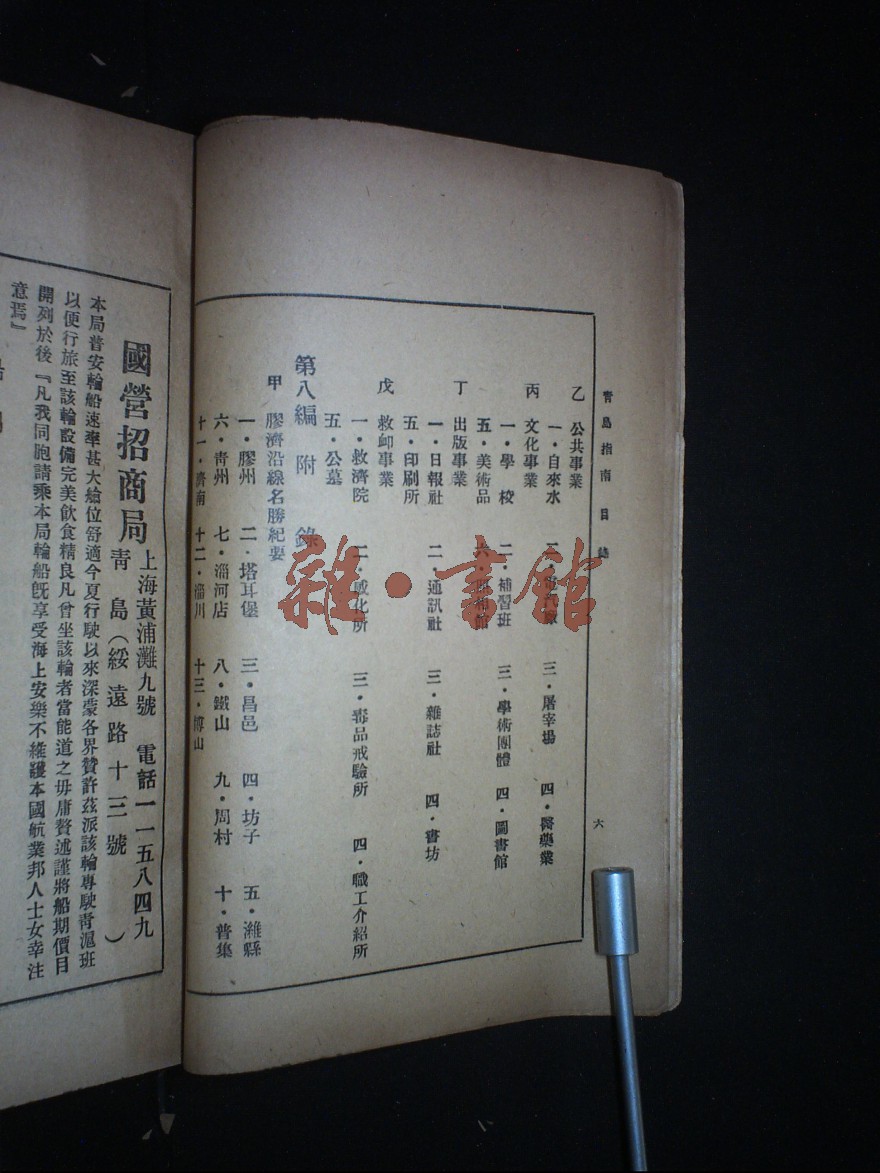 青島指南目錄
六
乙 公共事業
一・自來水 三・屠宰場 四・醫藥業
丙 文化事業
一・學校 二・補習班 三・學術團體 四・圖書館
五・美術品
丁 出版事業
一・日報社 二・通訊社 三・雜誌社 四・書坊
五・印刷所
戊 救卹事業
一・救濟院 二・感化所 三・毒品戒驗所 四・職工介紹所
五・公墓
第八編 附錄
甲 膠濟沿線名勝紀要
一・膠州 二・塔耳堡 三・昌邑 四・坊子 五・濰縣
六・青州 七・淄河店 八・鐵山 九・周村 十・普集
十一・濟南 十二・淄川 十三・博山
國營招商局
上海黃浦灘九號 電話一一五八四九
青島(綏遠路十三號 )
本局普安輪船速率甚大艙位舒適今夏行駛以來深蒙各界贊許茲派該輪專駛青滬班
以便行旅至該輪設備完美飲食精良凡曾坐該輪者當能道之毋庸贅述謹將船期價目
開列於後『凡我同胞請乘本局輪船旣享受海上安樂不維護本國航業邦人士女幸注
意焉』
雜・書館